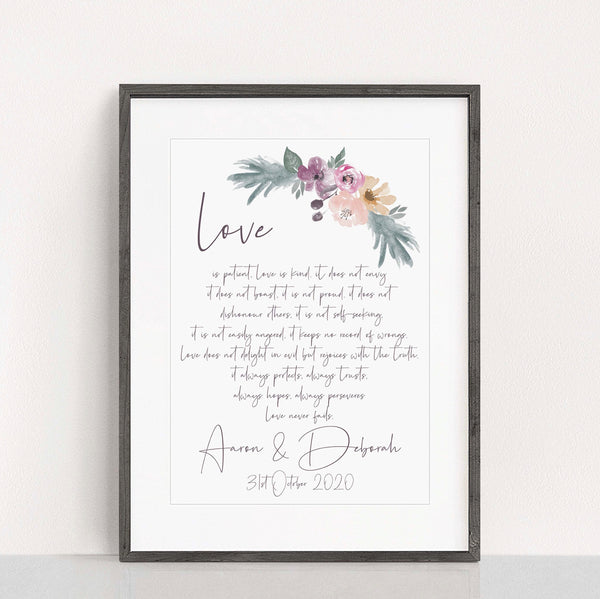 Love
is patient, Love is kind, it does not envy
it does not boast, it is not proud, it does not
dishonour others, it is not self-seeking,
it is not easily angered, it keeps no record of wrongs,
Love does not delight in evil but rejoices with the truth,
it always protects, always trusts,
always hopes, always perseveres
Love never fails.
Aaron & Deborah
31st October 2020